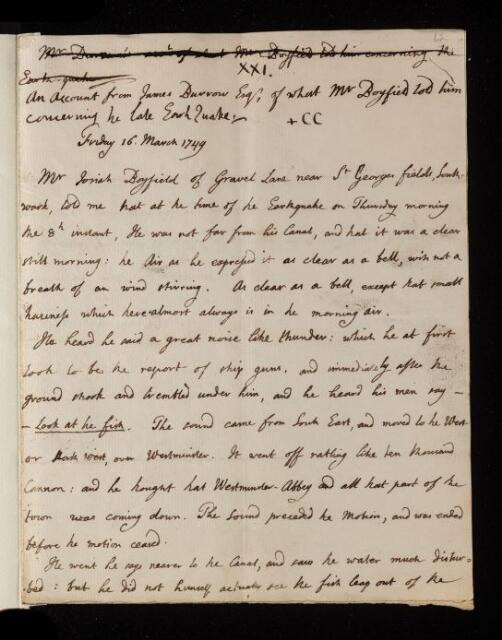 Mr Durrow's acct of what Mr Doyfied told him concerning the
Earth-quake
XXI.
An Account from James Burrow Esqr, of what Mr Doyfield told him
concerning he late Earh Quake.
+CC
Friday 16. March 1749
Mr Josiah Doyfield of Gravel Lane near St Georges fields, South-
wark, told me hat at he time of he Earhquake on Thursday morning
the 8th instant, He was not far from his Canal, and hat it was a clear
still morning: he Air as he expressed it as clear as a bell, with not a
breath of an wind stirring. As clear as a bell, except hat small
haziness which here almost always is in he morning air.
He heard he said a great noise like thunder: which he at first
took to be he report of ship guns, and immediately after the
ground shook and trembled under him, and he heard his men say -
- Look at he fish. The sound came from South East, and moved to he West
or North West, over Westminster. It went off ratling like ten thousand
Cannon: and he hought hat Westminster-Abbey and all hat part of he
town was coming down. The Sound preceded he Motion, and was ended
before he motion ceased.
He went he says nearer to he Canal, and saw he water much distur-
bed: but he did not himself actually see he fish leap out of he